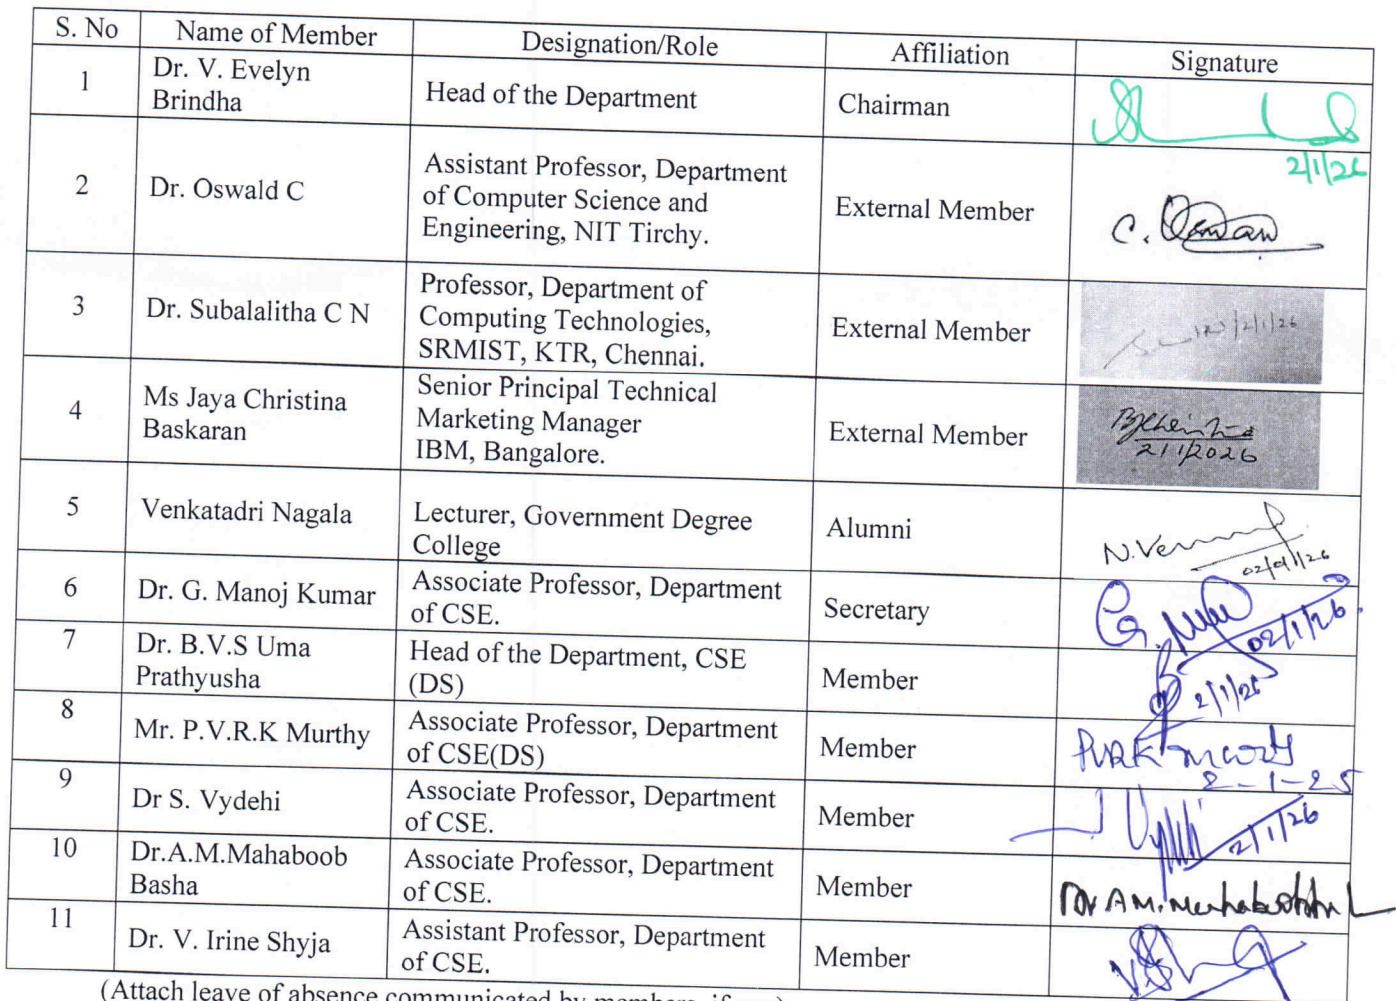 S. No Name of Member Designation/Role Affiliation Signature
1 Dr. V. Evelyn Brindha Head of the Department Chairman
2/1/26
2 Dr. Oswald C Assistant Professor, Department of Computer Science and Engineering, NIT Tirchy. External Member C. Oswald
3 Dr. Subalalitha C N Professor, Department of Computing Technologies, SRMIST, KTR, Chennai. External Member 2/1/26
4 Ms Jaya Christina Baskaran Senior Principal Technical Marketing Manager IBM, Bangalore. External Member
2/1/2026
5 Venkatadri Nagala Lecturer, Government Degree College Alumni N.Ven
02/01/26
6 Dr. G. Manoj Kumar Associate Professor, Department of CSE. Secretary
02/1/26
7 Dr. B.V.S Uma Prathyusha Head of the Department, CSE (DS) Member
2/1/26
8 Mr. P.V.R.K Murthy Associate Professor, Department of CSE(DS) Member PVRK Murthy
2-1-25
9 Dr S. Vydehi Associate Professor, Department of CSE. Member
2/1/26
10 Dr.A.M.Mahaboob Basha Associate Professor, Department of CSE. Member Dr A.M.
11 Dr. V. Irine Shyja Assistant Professor, Department of CSE. Member
(Attach leave of absence communicated by members, if any)